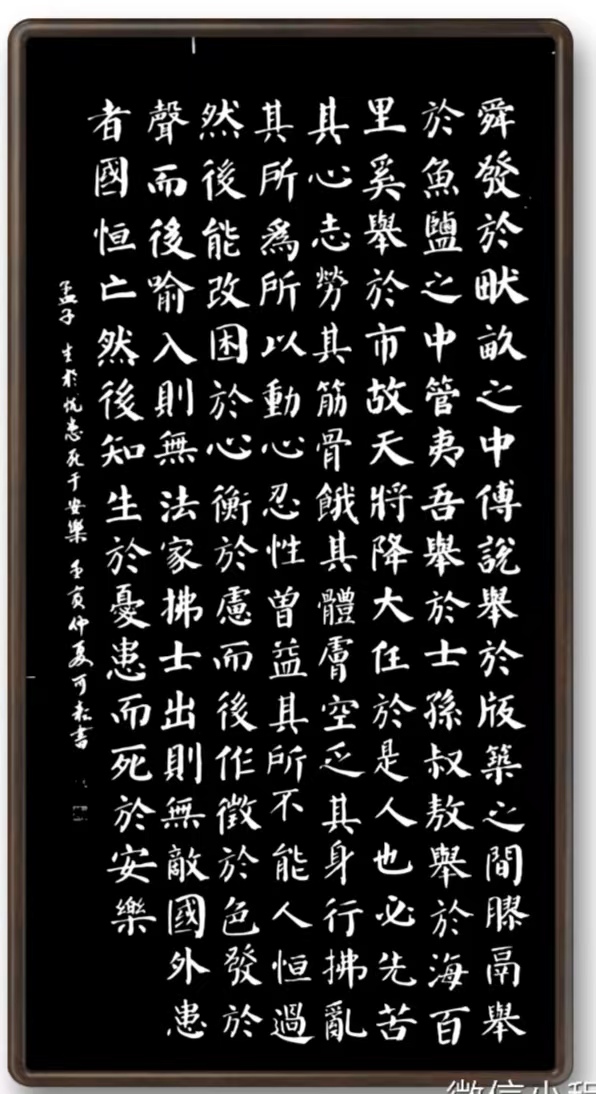 舜發於畎畝之中傅說舉於版築之間膠鬲舉
於魚鹽之中管夷吾舉於士孫叔敖舉於海百
里奚舉於市故天將降大任於是人也必先苦
其心志勞其筋骨餓其體膚空乏其身行拂亂
其所為所以動心忍性曾益其所不能人恒過
然後能改困於心衡於慮而後作徵於色發於
聲而後喻入則無法家拂士出則無敵國外患
者國恒亡然後知生於憂患而死於安樂
孟子 生於忧患死于安樂 壬寅仲夏可耘書
微信小程